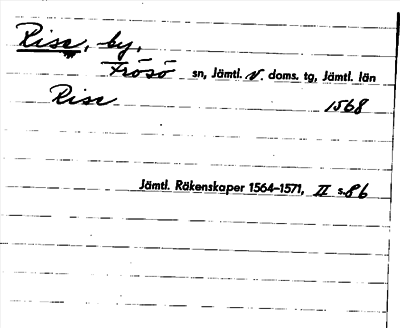 Rise, by,
Frösö sn, Jämtl. V. doms. tg, Jämtl. län
Rise 1568
Jämtl. Räkenskaper 1564-1571, II s. 86